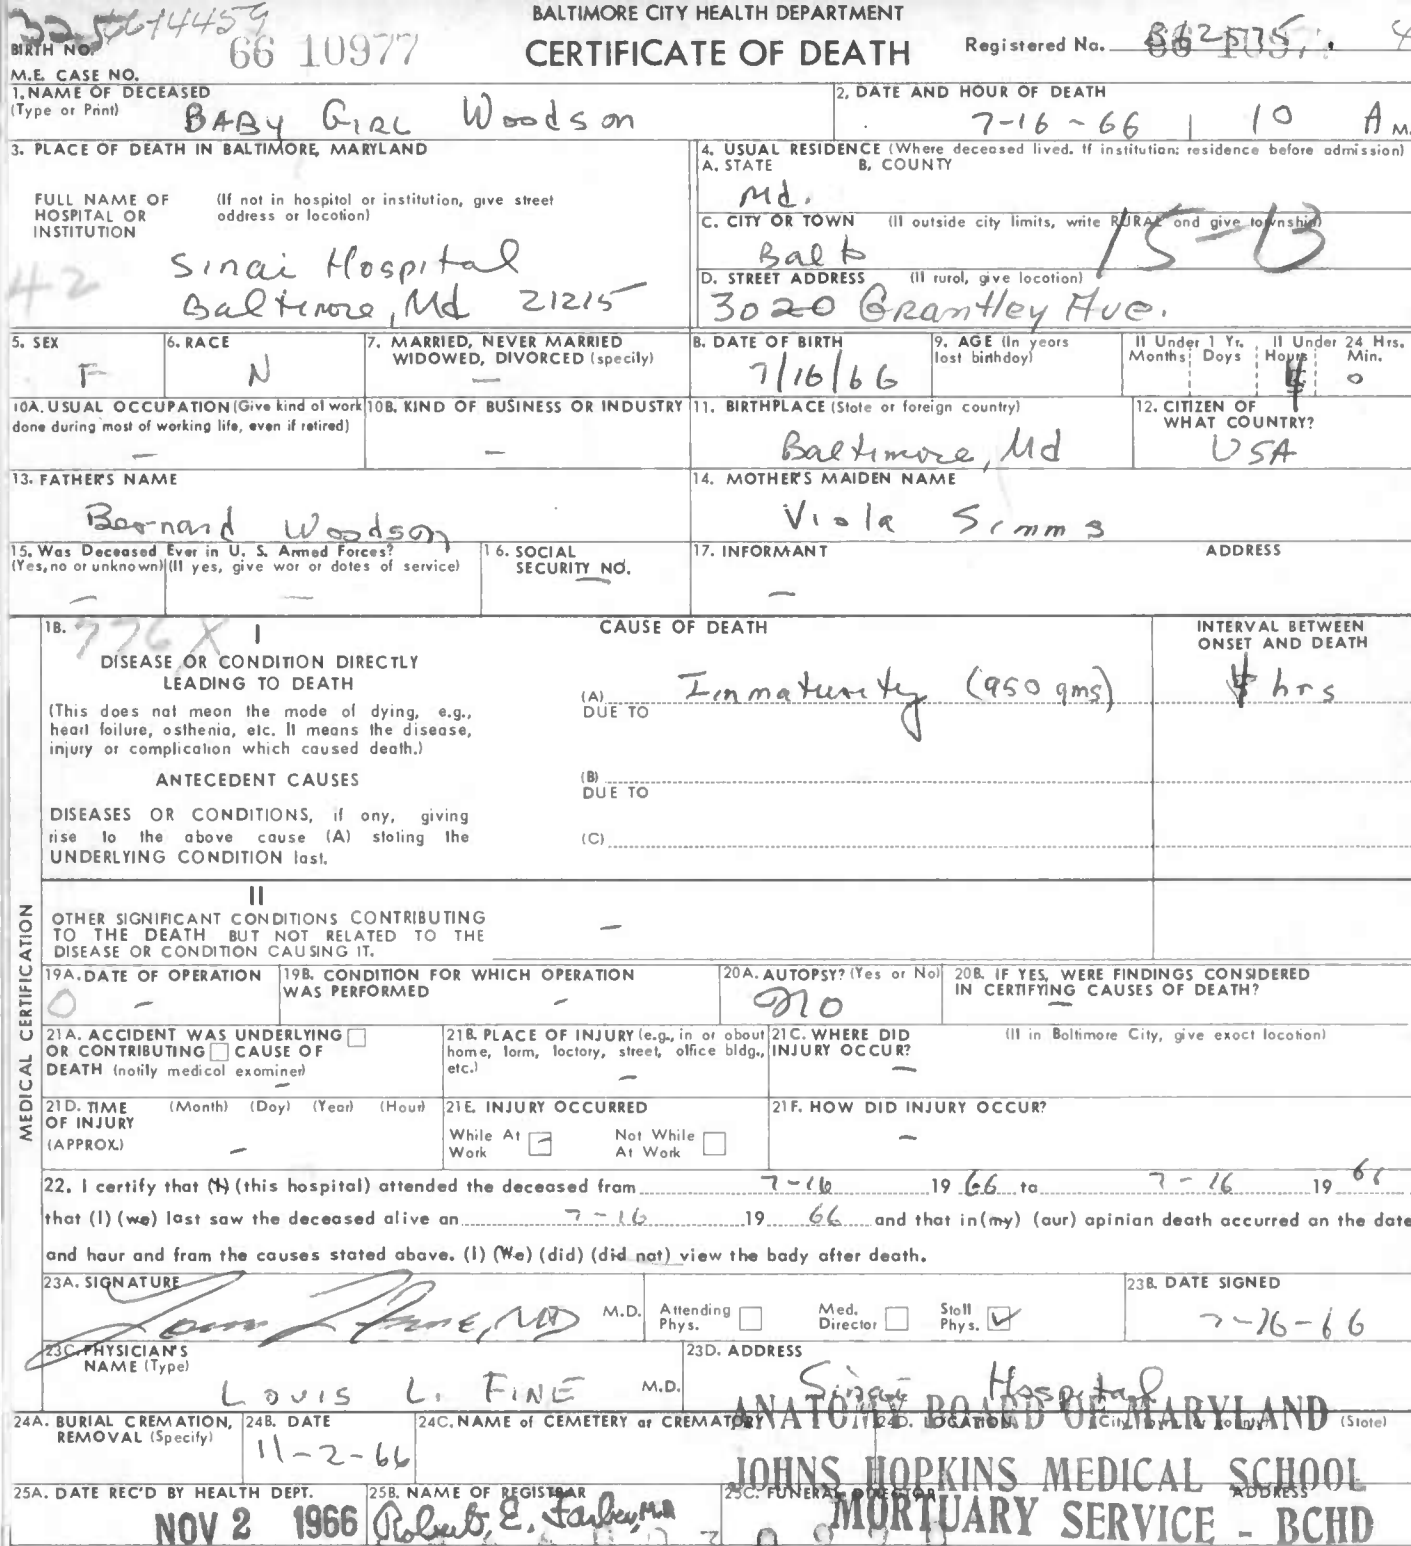 BALTIMORE CITY HEALTH DEPARTMENT
CERTIFICATE OF DEATH
BIRTH NO.
66 10977
Registered No.
M.E. CASE NO.
1. NAME OF DECEASED
(Type or Print)
BABY GIRL Woodson
2. DATE AND HOUR OF DEATH
7-16-66 | 10 A M.
3. PLACE OF DEATH IN BALTIMORE, MARYLAND
FULL NAME OF HOSPITAL OR INSTITUTION
(If not in hospital or institution, give street address or location)
Sinai Hospital
Baltimore, Md 21215
42
4. USUAL RESIDENCE (Where deceased lived. If institution: residence before admission)
A. STATE B. COUNTY
Md.
C. CITY OR TOWN (If outside city limits, write RURAL and give township)
Balto
15-13
D. STREET ADDRESS (If rural, give location)
3020 Grantley Ave.
5. SEX
F
6. RACE
N
7. MARRIED, NEVER MARRIED
WIDOWED, DIVORCED (specify)
—
8. DATE OF BIRTH
7/16/66
9. AGE (In years
last birthday)
If Under 1 Yr. If Under 24 Hrs.
Months Days Hours Min.
4 0
10A. USUAL OCCUPATION (Give kind of work
done during most of working life, even if retired)
—
10B. KIND OF BUSINESS OR INDUSTRY
—
11. BIRTHPLACE (State or foreign country)
Baltimore, Md
12. CITIZEN OF
WHAT COUNTRY?
USA
13. FATHER'S NAME
Bernard Woodson
14. MOTHER'S MAIDEN NAME
Viola Simms
15. Was Deceased Ever in U. S. Armed Forces?
(Yes, no or unknown) (If yes, give war or dates of service)
— —
16. SOCIAL
SECURITY NO.
—
17. INFORMANT ADDRESS
—
MEDICAL CERTIFICATION
18. 776X I
CAUSE OF DEATH
INTERVAL BETWEEN
ONSET AND DEATH
DISEASE OR CONDITION DIRECTLY
LEADING TO DEATH
(This does not mean the mode of dying, e.g.,
heart failure, asthenia, etc. It means the disease,
injury or complication which caused death.)
(A) Immaturity (950 gms) 4 hrs
DUE TO
ANTECEDENT CAUSES
(B)
DUE TO
DISEASES OR CONDITIONS, if any, giving
rise to the above cause (A) stating the
UNDERLYING CONDITION last.
(C)
II
OTHER SIGNIFICANT CONDITIONS CONTRIBUTING
TO THE DEATH BUT NOT RELATED TO THE
DISEASE OR CONDITION CAUSING IT.
—
19A. DATE OF OPERATION
0 —
19B. CONDITION FOR WHICH OPERATION
WAS PERFORMED
—
20A. AUTOPSY? (Yes or No)
No
20B. IF YES, WERE FINDINGS CONSIDERED
IN CERTIFYING CAUSES OF DEATH?
—
21A. ACCIDENT WAS UNDERLYING
OR CONTRIBUTING CAUSE OF
DEATH (notify medical examiner)
—
21B. PLACE OF INJURY (e.g., in or about
home, farm, factory, street, office bldg.,
etc.)
—
21C. WHERE DID
INJURY OCCUR?
(If in Baltimore City, give exact location)
—
21D. TIME (Month) (Day) (Year) (Hour)
OF INJURY
(APPROX.)
—
21E. INJURY OCCURRED
While At Work
Not While At Work
21F. HOW DID INJURY OCCUR?
—
22. I certify that (I) (this hospital) attended the deceased from 7-16 19 66 to 7-16 19 66
that (I) (we) last saw the deceased alive on 7-16 19 66 and that in (my) (our) opinion death occurred on the date
and hour and from the causes stated above. (I) (We) (did) (did not) view the body after death.
23A. SIGNATURE
Louis L Fine, MD M.D.
Attending Phys.
Med. Director
Staff Phys. ✓
23B. DATE SIGNED
7-16-66
23C. PHYSICIAN'S
NAME (Type)
LOUIS L. FINE M.D.
23D. ADDRESS
Sinai Hospital
24A. BURIAL CREMATION,
REMOVAL (Specify)
24B. DATE
11-2-66
24C. NAME of CEMETERY or CREMATORY
24D. LOCATION (City, town, or county) (State)
ANATOMY BOARD OF MARYLAND
JOHNS HOPKINS MEDICAL SCHOOL
25A. DATE REC'D BY HEALTH DEPT.
NOV 2 1966
25B. NAME OF REGISTRAR
Robert E. Farber, M.D.
25C. FUNERAL DIRECTOR ADDRESS
MORTUARY SERVICE - BCHD